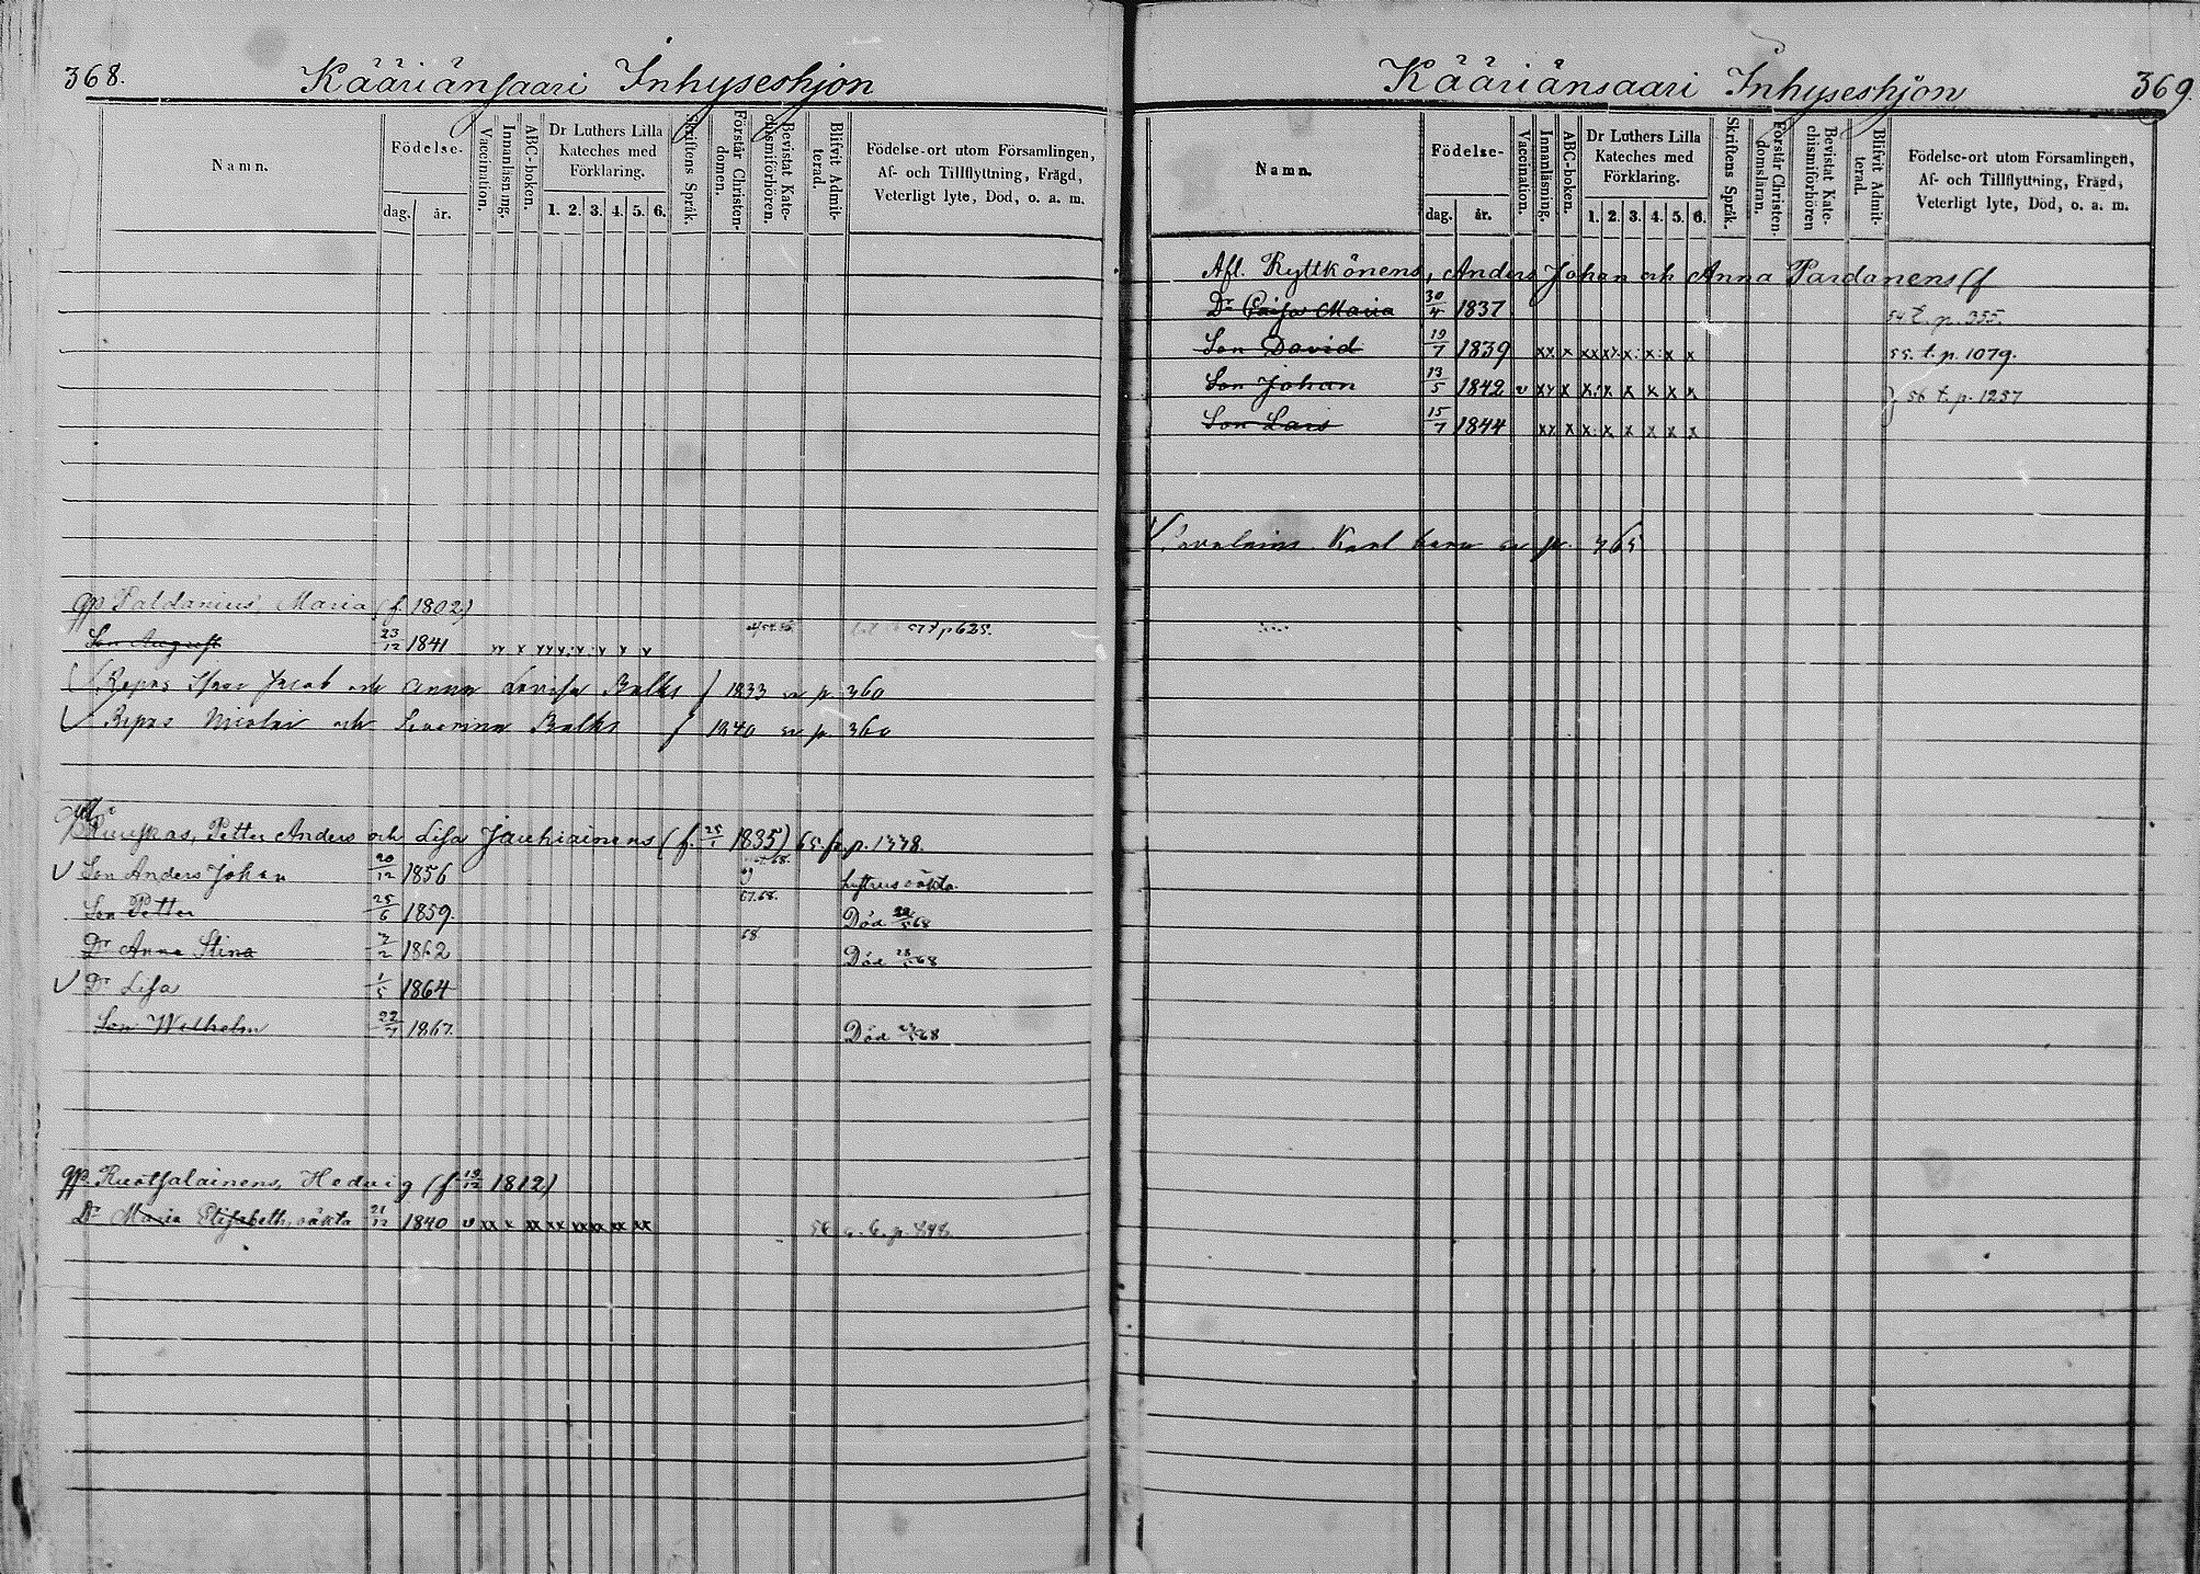 368.
Kääriänsaari Inhyseshjon
Namn.
Födelse-
dag. år.
Vaccination.
Innanläsning.
ABC-boken.
Dr Luthers Lilla Kateches med Förklaring.
1. 2. 3. 4. 5. 6.
Skriftens Språk.
Förstår Christendomen.
Bevistat Katechismiförhören.
Blifvit Admitterad.
Födelse-ort utom Församlingen,
Af- och Tillflyttning, Frägd,
Veterligt lyte, Död, o. a. m.
Paldanius, Maria (f. 1802)
Son August 23/12 1841 57 t p 625.
Repos Isaac Jacob och Anna Lovisa Balks 1833 se p. 360
Repos Nicolai och Severina Balks 1840 se p. 360
Petter Anders och Lisa Jauhiainens (f. 25/1 1835) 65. p. 1778.
Son Anders Johan 20/12 1856 69
Son Petter 25/6 1859. 67.68. Död 68
Dr Anna Stina 7/2 1862 68 Död 68
Dr Lisa 1/5 1864
Son Wilhelm 22/7 1867. Död 68
Ruotsalainens, Hedvig (f. 1812)
Dr Maria Elisabeth, oäkta 21/12 1840 v xx x xx xx xx xx xx xx
369
Kääriänsaari Inhyseshjön
Namn.
Födelse-
dag. år.
Vaccination.
Innanläsning.
ABC-boken.
Dr Luthers Lilla Kateches med Förklaring.
1. 2. 3. 4. 5. 6.
Skriftens Språk.
Förstår Christendomsläran.
Bevistat Katechismiförhören
Blifvit Admitterad.
Födelse-ort utom Församlingen,
Af- och Tillflyttning, Frägd,
Veterligt lyte, Död, o. a. m.
Afl. Ryttkönens, Anders Johan och Anna Pardanens
Dr Caisa Maria 30/4 1837 54 t. p. 355.
Son David 19/7 1839 xx x xx x x x x x 55. t. p. 1079.
Son Johan 13/5 1842 v xx x x x x x x x 56 t. p. 1237
Son Lars 15/7 1844 xx x x x x x x x
Karl se p. 365